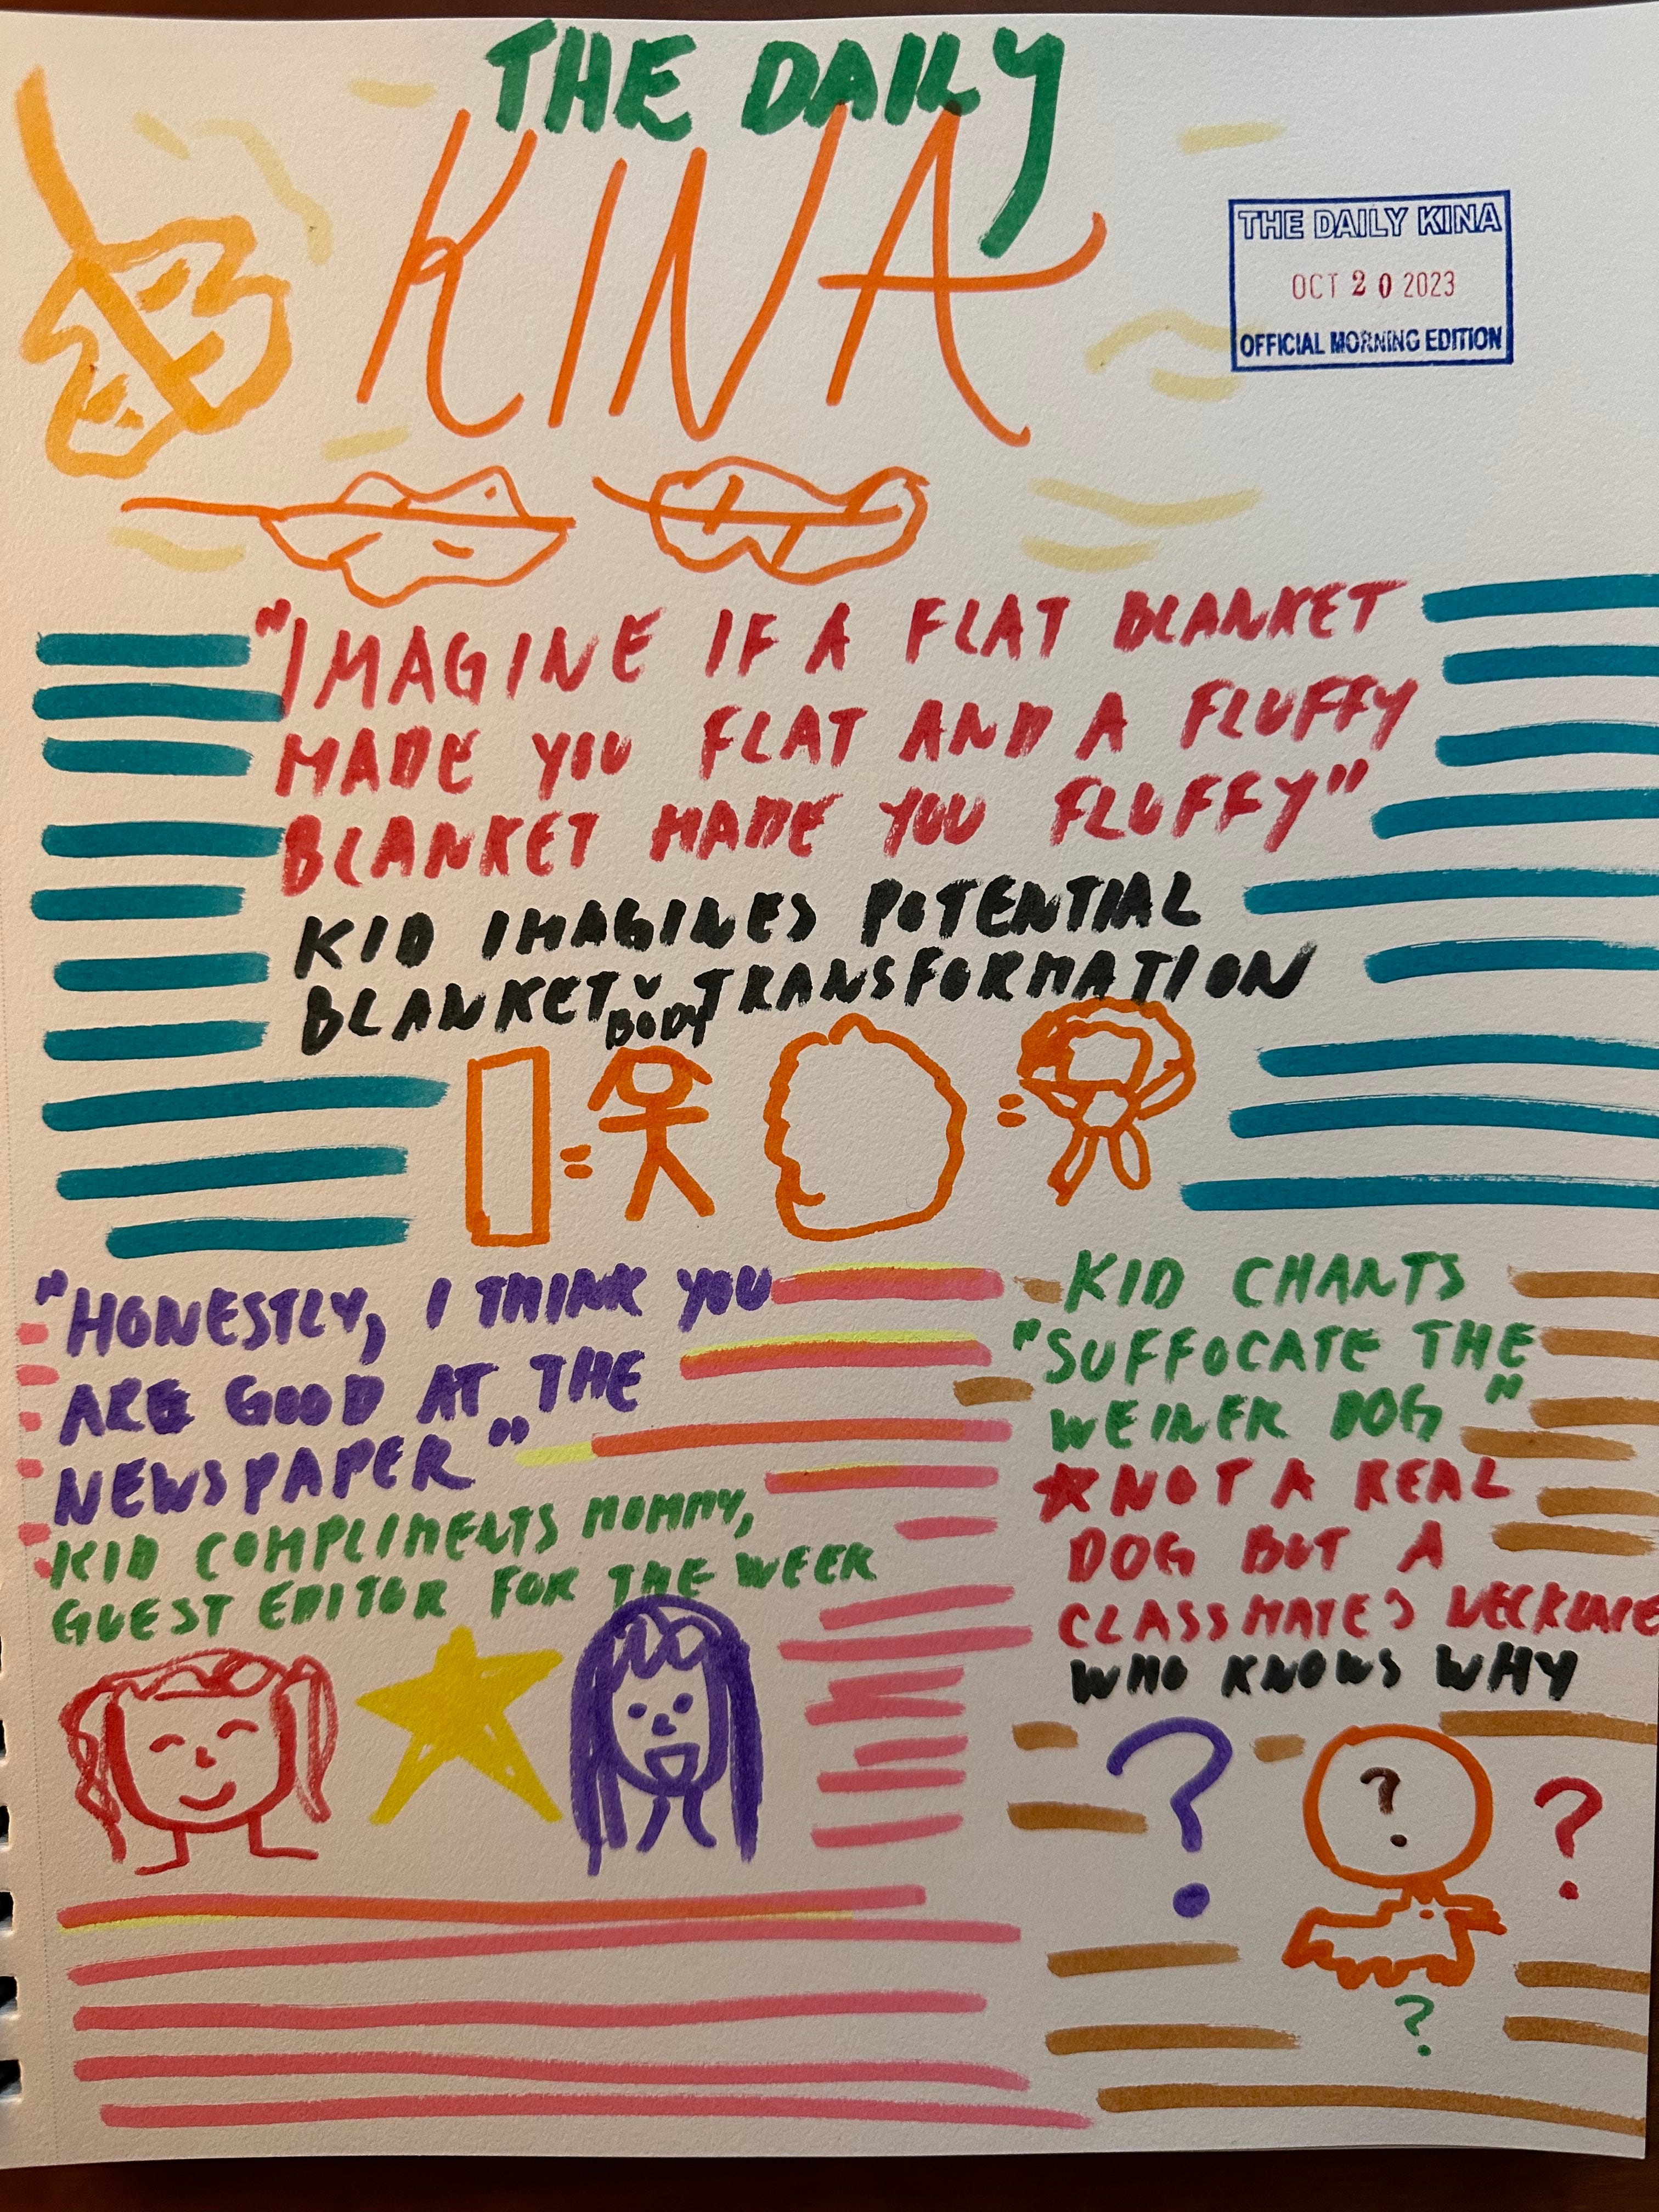 THE DAILY
KINA
THE DAILY KINA
OCT 20 2023
OFFICIAL MORNING EDITION
"IMAGINE IF A FLAT BLANKET
MADE YOU FLAT AND A FLUFFY
BLANKET MADE YOU FLUFFY"
KID IMAGINES POTENTIAL
BLANKET BODY TRANSFORMATION
=
=
"HONESTLY, I THINK YOU
ARE GOOD AT THE
NEWSPAPER"
KID COMPLIMENTS MOMMY,
GUEST EDITOR FOR THE WEEK
KID CHANTS
"SUFFOCATE THE
WEINER DOG"
*NOT A REAL
DOG BUT A
CLASSMATE'S NECKLACE
WHO KNOWS WHY
? ? ?
?